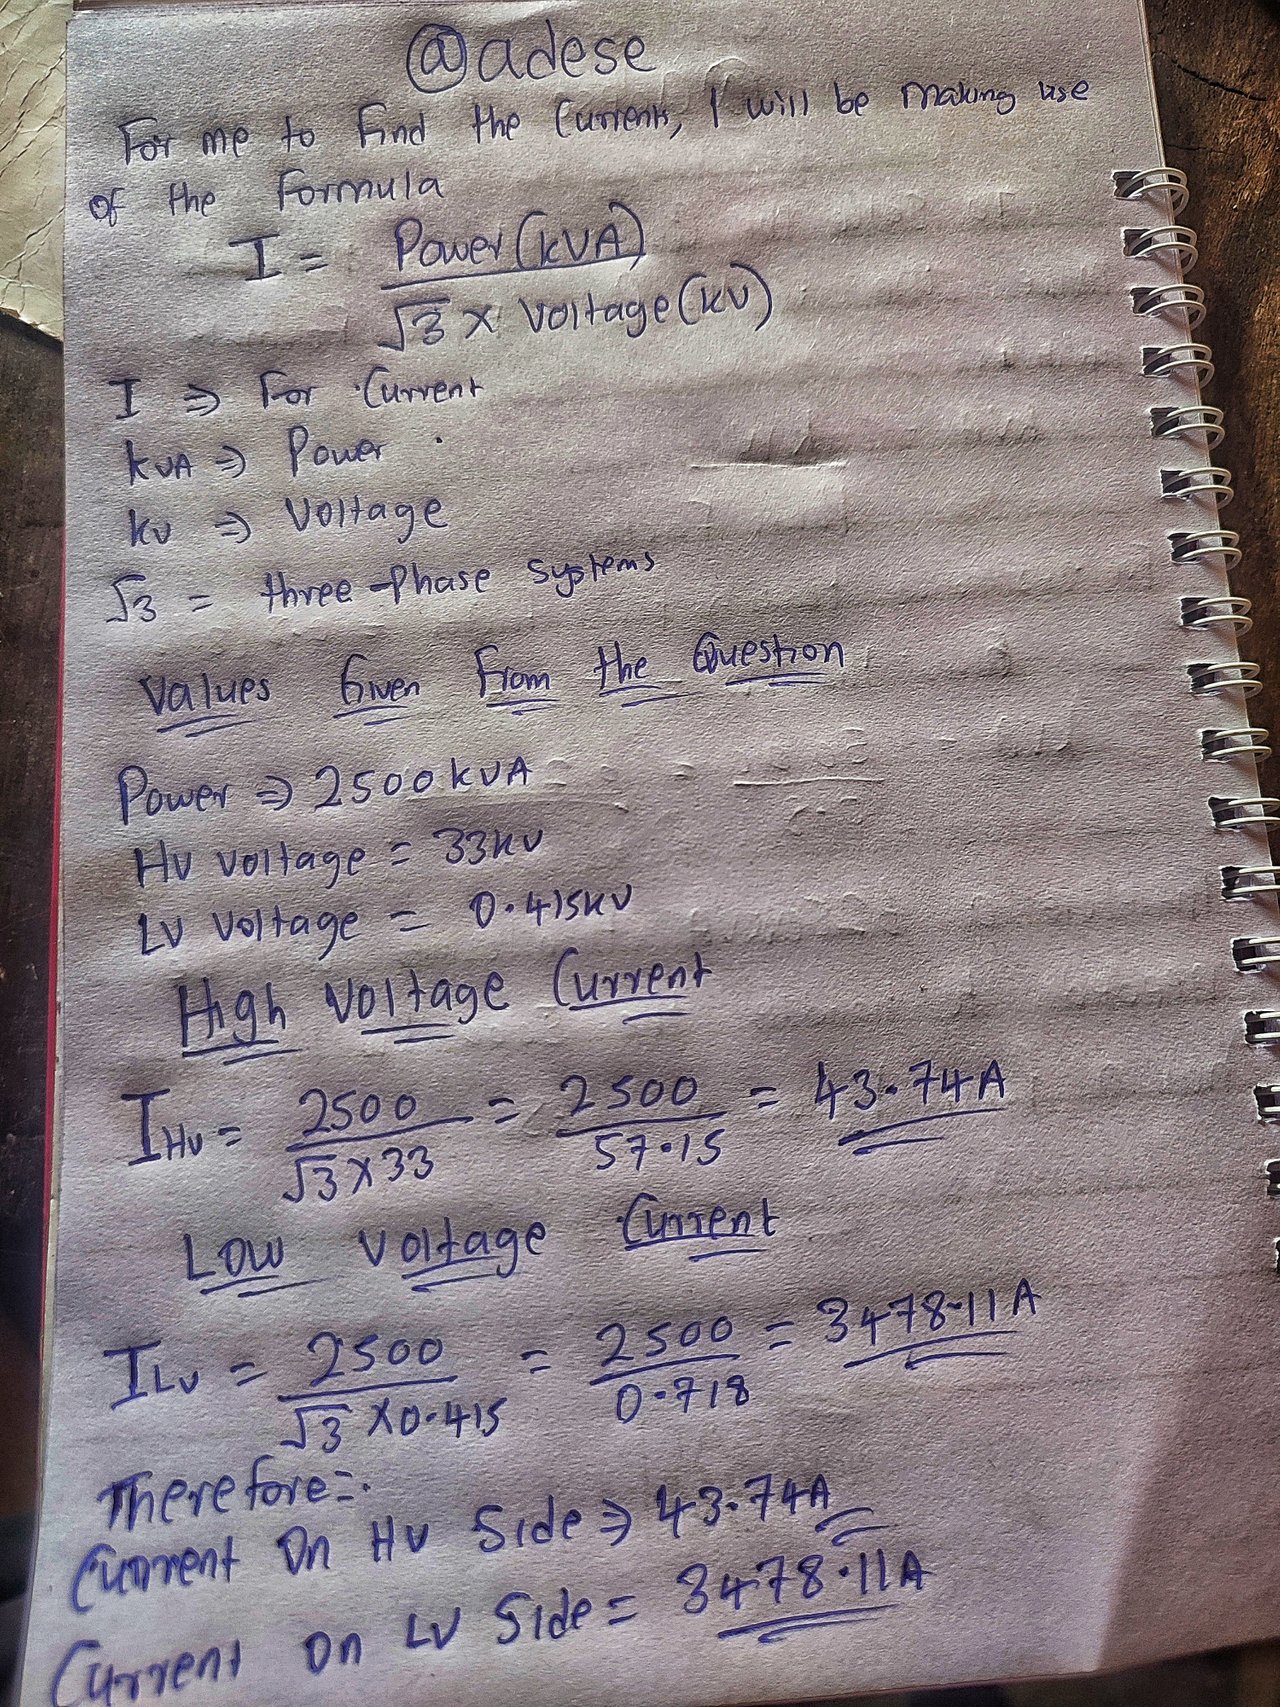 @adese
For me to find the Currents, I will be making use
of the Formula
I = Power (kVA)
√3 x Voltage (kV)
I ⇒ For Current
kVA ⇒ Power
kV ⇒ Voltage
√3 = three-Phase systems
Values Given From the Question
Power ⇒ 2500kVA
HV Voltage = 33kV
LV Voltage = 0.415kV
High Voltage Current
IHV = 2500 / √3 x 33 = 2500 / 57.15 = 43.74A
Low Voltage Current
ILV = 2500 / √3 x 0.415 = 2500 / 0.718 = 3478.11A
Therefore=.
Current On HV Side ⇒ 43.74A
Current On LV Side = 3478.11A